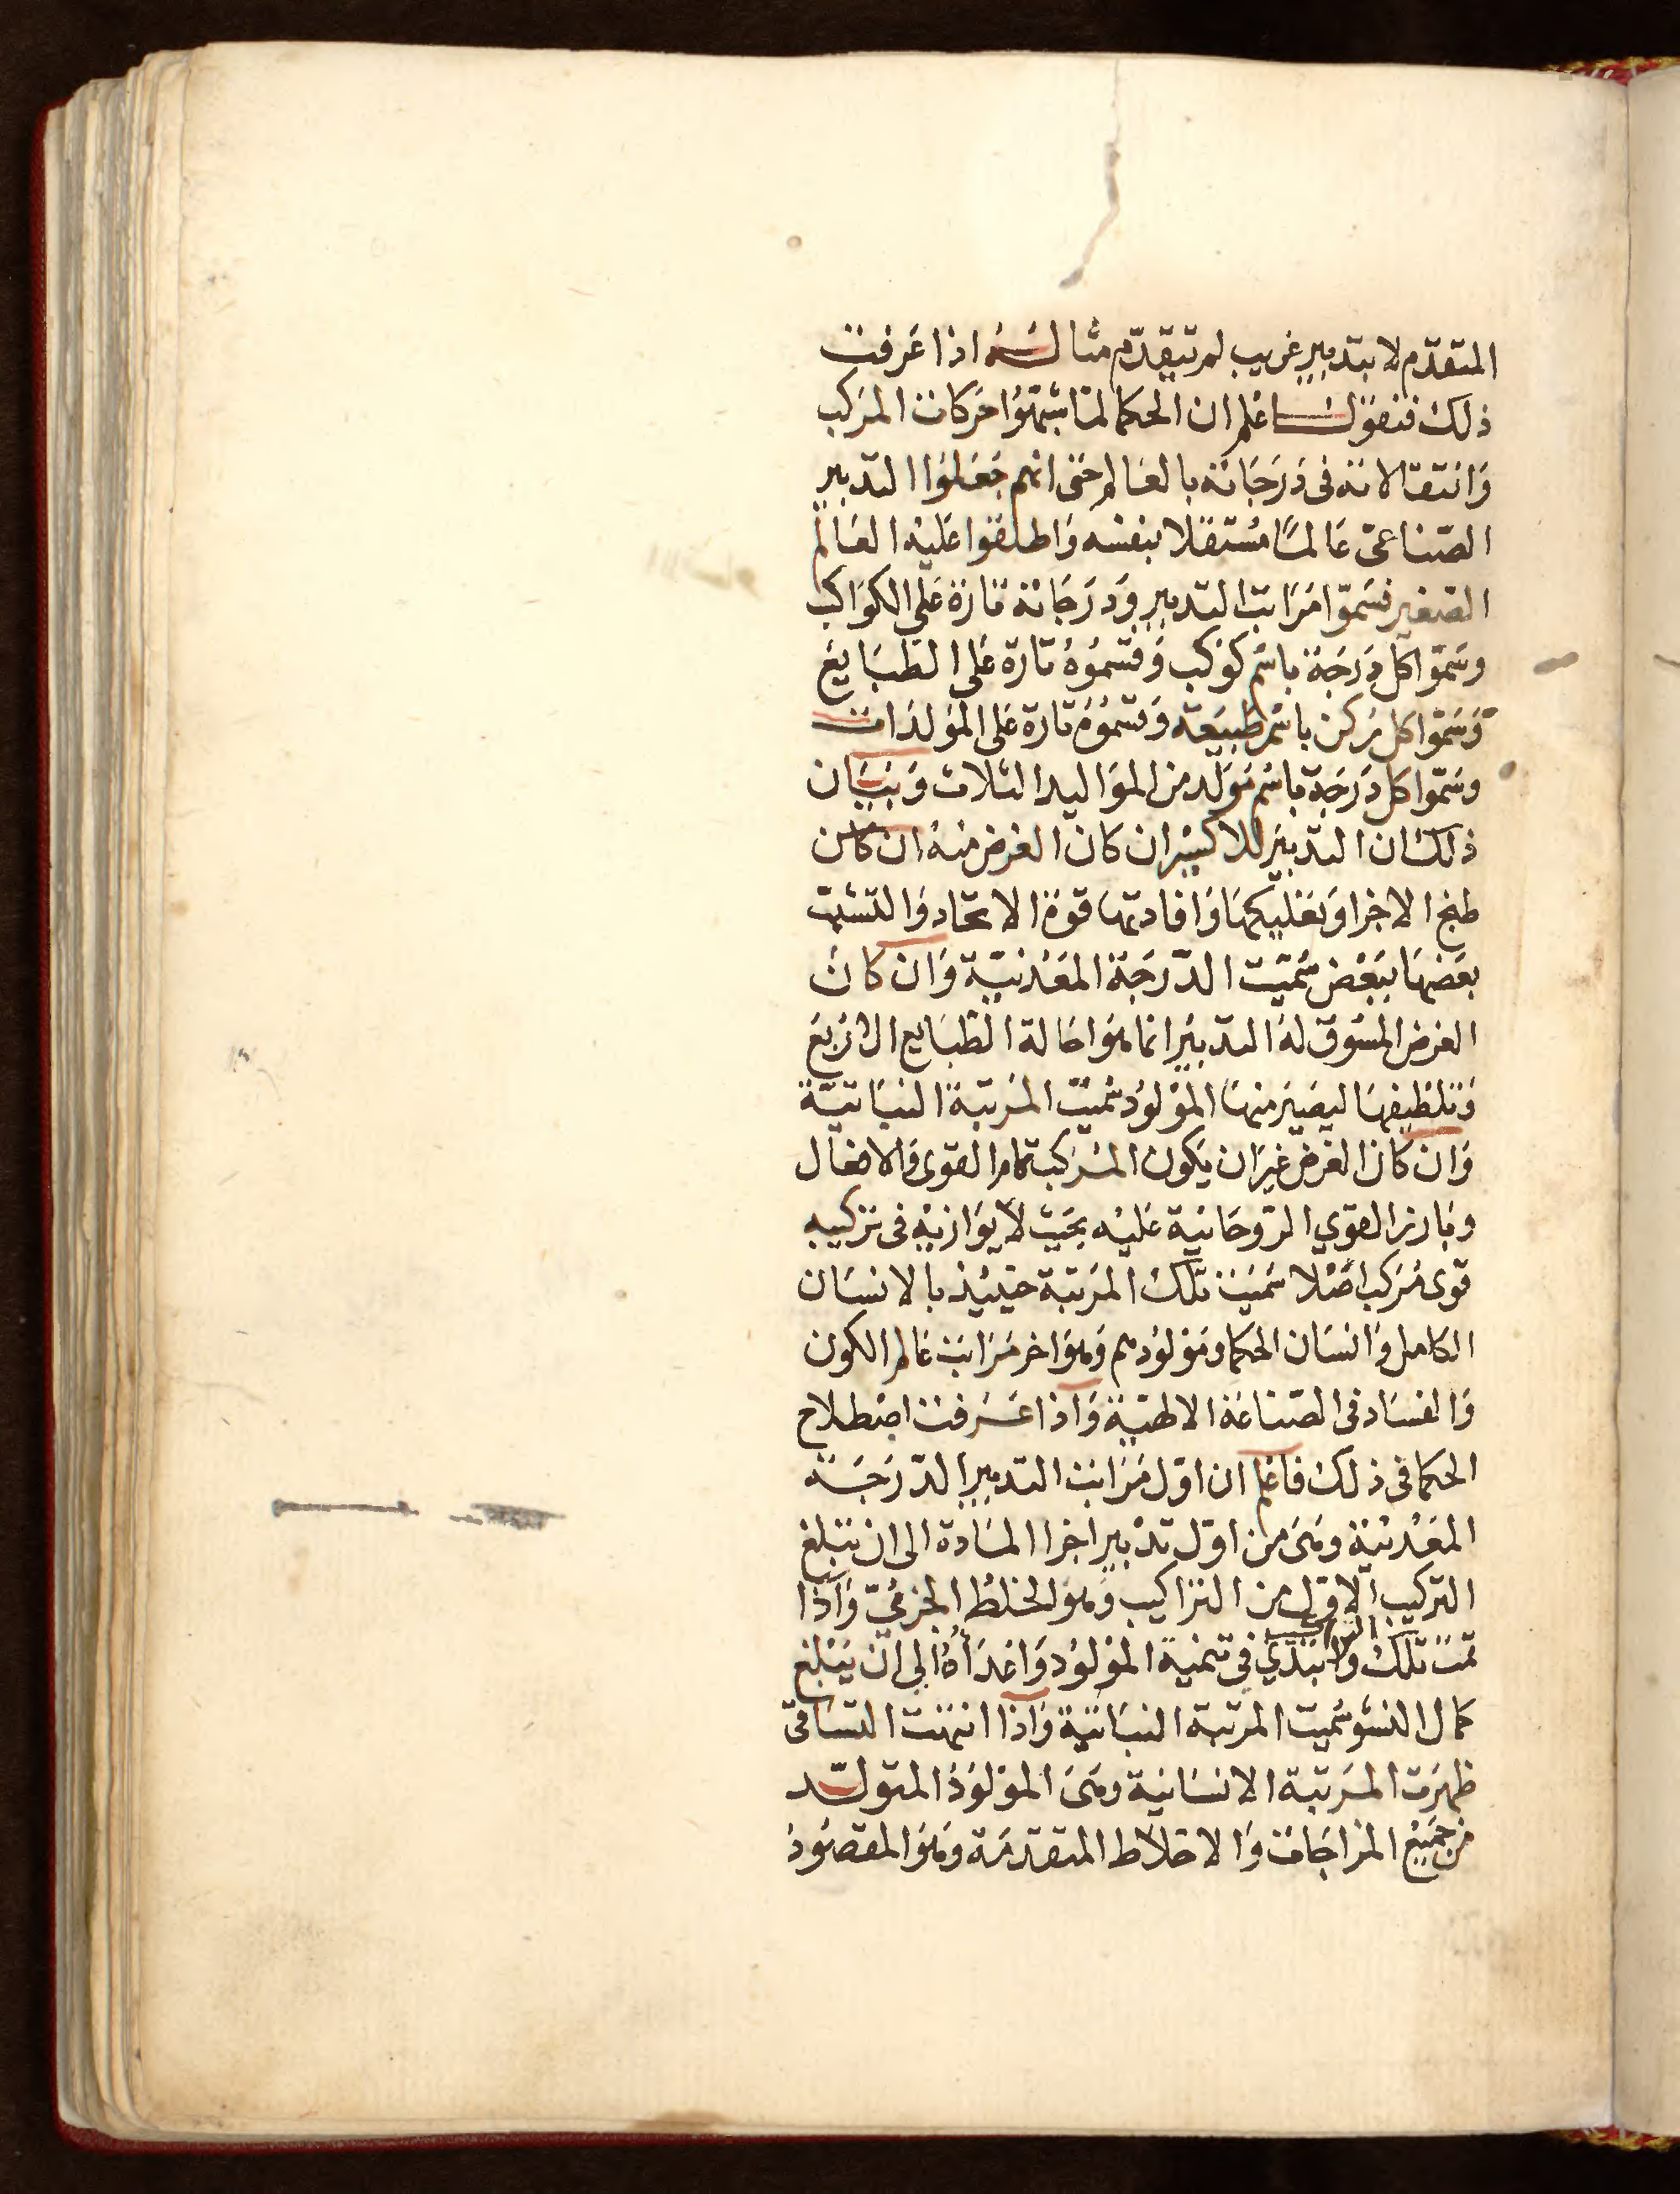 المتقدّم لا بتدبير غريب لم يتقدّم مثاله اذا عرفت
ذلك فنقول اعلم ان الحكما لما شبّهوا حركات المركب
وانتقالاته في درجاته بالعالم حتى انهم جعلوا التدبير
الصناعىّ عالمًا مستقلا بنفسه واطلقوا عليه العالم
الصغير قسّموا مراتب التدبير ودرجاته تارة على الكواكب
وسمّوا كل درجة باسم كوكب وقسموه تارة على الطبايع
وسمّوا كل ركن باسم طبيعة وقسموه تارة على المولدات
وسمّوا كل درجة باسم مولد من المواليد الثلاث وبيان
ذلك ان التدبير للاكسير ان كان الغرض منه ان كان
طبخ الاجزا وتفليكها وافادتها قوة الاتحاد والتشبّث
بعضها ببعض سمّيت الدّرجة المعدنيّة وان كان
الغرض المسوق له التدبير انما هو احالة الطبايع الاربع
وتلطيفها ليصير منها المولود سُميّت المرتبة النباتيّة
وان كان الغرض غير ان يكون المركبة تامر القوى والافعال
وبارز القوي الروحانية عليه بحيث لا يوازيه في تركيبه
قوى مركب اصلا سميت تلك المرتبة حينيذ بالانسان
الكامل وانسان الحكما ومولودهم وهو اخر مراتب عالم الكون
والفساد في الصناعة الالهيّة واذا عرفت اصطلاح
الحكما في ذلك فاعلم ان اوّل مراتب التدبير الدّرجة
المعدنيّة وهى من اوّل تدبير اجزا المادة الى ان تبلغ
التركيب الاول من التراكيب وهو الخلط الجزءيّ واذا
تمت تلك التراكيب ولا تبتدي في تنمية المولود واغداه الى ان يبلغ
كمال النشو سُميت المرتبة النباتيّة واذا انتهت التساقى
ظهرت المرتبة الانسانية وهى المولود المتولّد
من جميع المزاجات والاخلاط المتقدّمة وهو المقصود